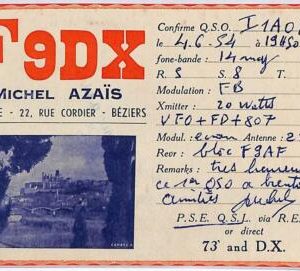 F9DX
MICHEL AZAÏS
22, RUE CORDIER - BÉZIERS
Confirme Q.S.O. I1AO
le 4.6.54 à 19H50
fone-bande: 14 mcy
R 5 S 8 T
Modulation: FB
Xmitter: 20 Watts
VFO+FD+807
Modul: écran Antenne: 2
Recvr: bloc F9AF
Remarks: très heureux
ce 1er QSO
amitiés Michel
P.S.E. Q.S.L. via R.E.
or direct
73' and D.X.